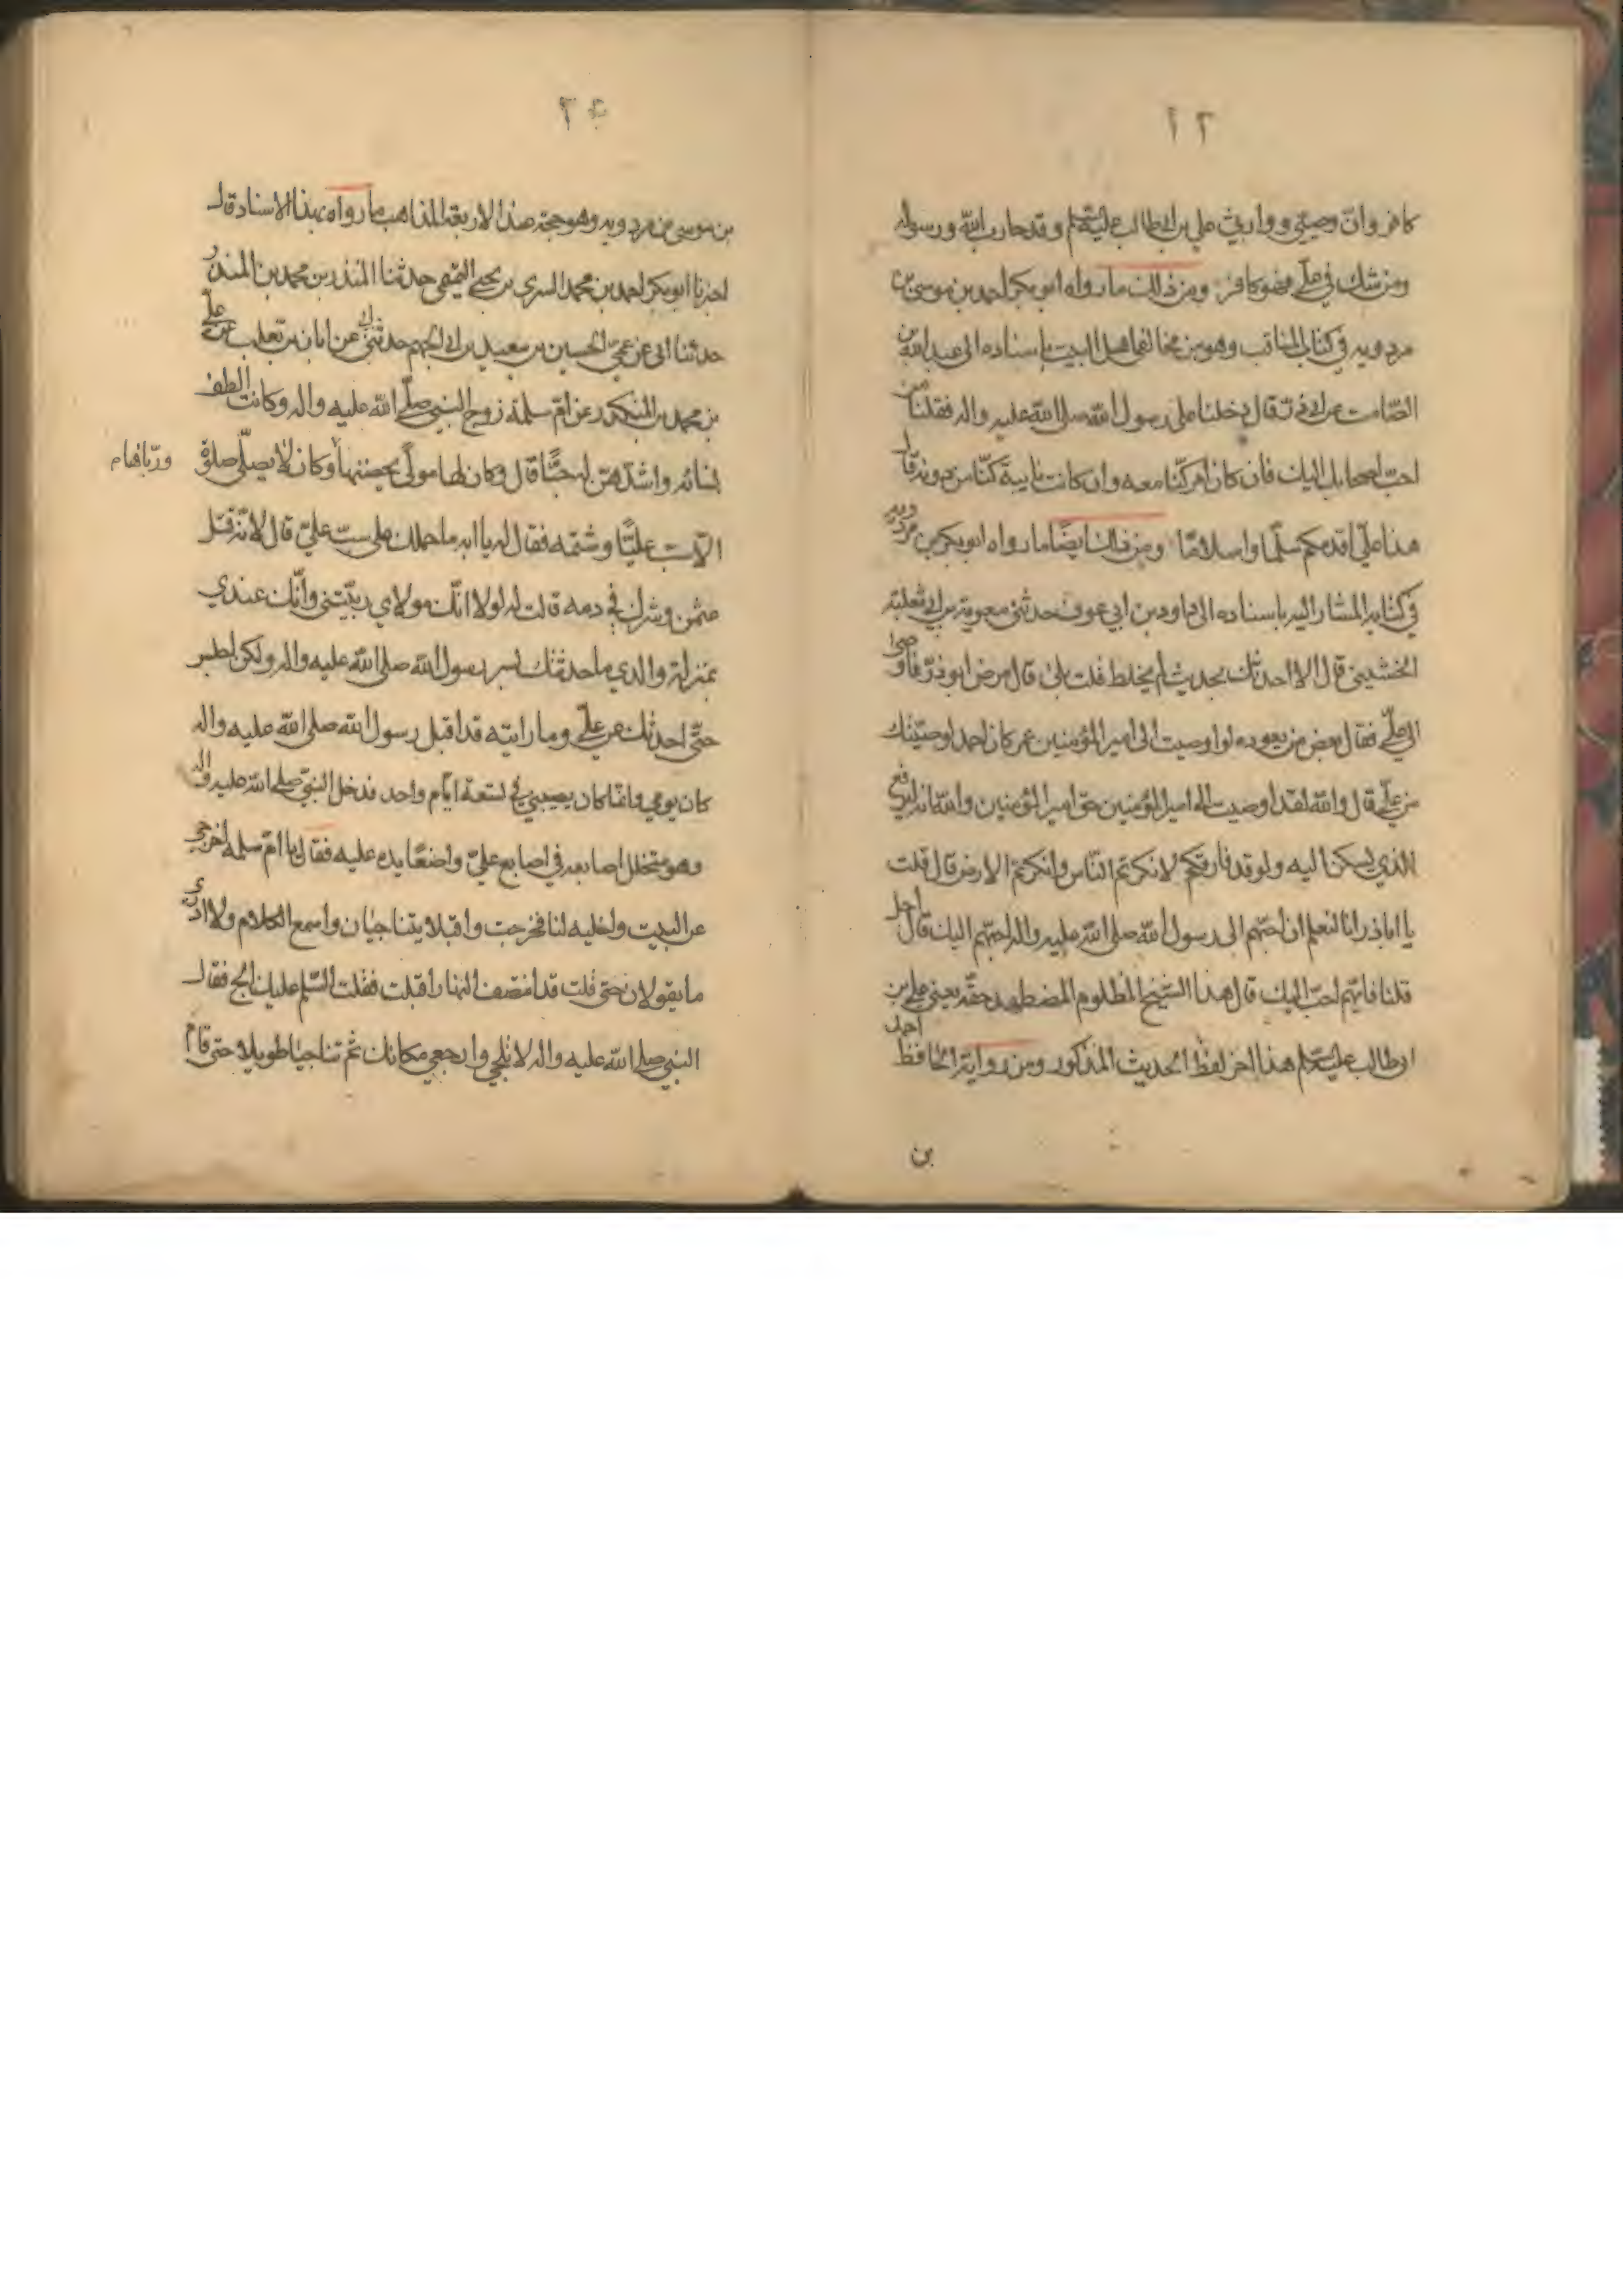 ٢١
كافر وان وصيتي ووارثي علي بن ابيطالب عليه السلم وقد حارب الله ورسوله
ومن شك في علي فهو كافر ومن ذلك ما رواه ابو بكر احمد بن موسى بن
مردويه في كتاب المناقب وهو من مخالفي اهل البيت باسناده الى عبد الله بن
الصامت عن ابي ذر قال دخلنا على رسول الله صلى الله عليه واله فقلنا من
احب اصحابك اليك فان كان امر كنا معه وان كانت نايبة كنا من دونه قال
هذا علي اقدمكم سلما واسلاما ومن ذلك ايضا ما رواه ابو بكر بن مردويه
في كتابه المشار اليه باسناده الى داود بن ابي عوف حدثني معوية بن ابي ثعلبة
الخشيني قال الا احدثك بحديث لم يخلط قلت بلى قال مرض ابو ذر فاوصى
الى علي فقال بعض من يعوده لو اوصيت الى امير المؤمنين عمر كان احمد لوصيتك
من علي قال والله لقد اوصيت الى امير المؤمنين حق امير المؤمنين والله انه لربع
الذي يسكن اليه ولو قد فارقكم لانكرتم الناس وانكرتم الارض قال قلت
يا اباذر انا لنعلم ان احبهم الى رسول الله صلى الله عليه واله احبهم اليك قال اجل
قلنا فايهم احب اليك قال هذا الشيخ المظلوم المضطهد حقه يعني علي بن
ابيطالب عليه السلم هذا اخر لفظ الحديث المذكور ومن رواية الحافظ احمد
بن
بن موسى بن مردويه وهو حجة عند الاربعة المذاهب ما رواه بهذا الاسناد قال
اخبرنا ابو بكر احمد بن محمد السري بن يحيى التميمي حدثنا المنذر بن محمد بن المنذر
حدثنا ابي عن عمي الحسين بن سعيد بن ابي الجهم حدثني ابي عن ابان بن تغلب عن علي
بن محمد بن المنكدر عن ام سلمة زوج النبي صلى الله عليه واله وكانت الطف
نسائه واشدهن له حبا قال وكان لها مولى يحضنها وكان لا يصلي صلوة
ورباها م
الا سب عليا وشتمه فقال له يا ابه ما حملك على سب علي قال لانه قتل
عثمن وشرك في دمه قالت له لولا انك مولاي ربيتني وانك عندي
بمنزلة والدي ما حدثتك بسر رسول الله صلى الله عليه واله ولكن اجلس
حتى احدثك عن علي وما رايته قد اقبل رسول الله صلى الله عليه واله
كان يومي وانما كان يصيبني في تسعة ايام واحد فدخل النبي صلى الله عليه واله
وهو متخلل اصابعه في اصابع علي واضعا يده عليه فقال يا ام سلمه اخرجي
عن البيت واخليه لنا فخرجت واقبلا يتناجيان واسمع الكلام ولا ادري
ما يقولان حتى قلت قد انتصف النهار اقبلت فقلت السلم عليك الج فقال
النبي صلى الله عليه واله لا تلجي وارجعي مكانك ثم تناجيا طويلا حتى قام